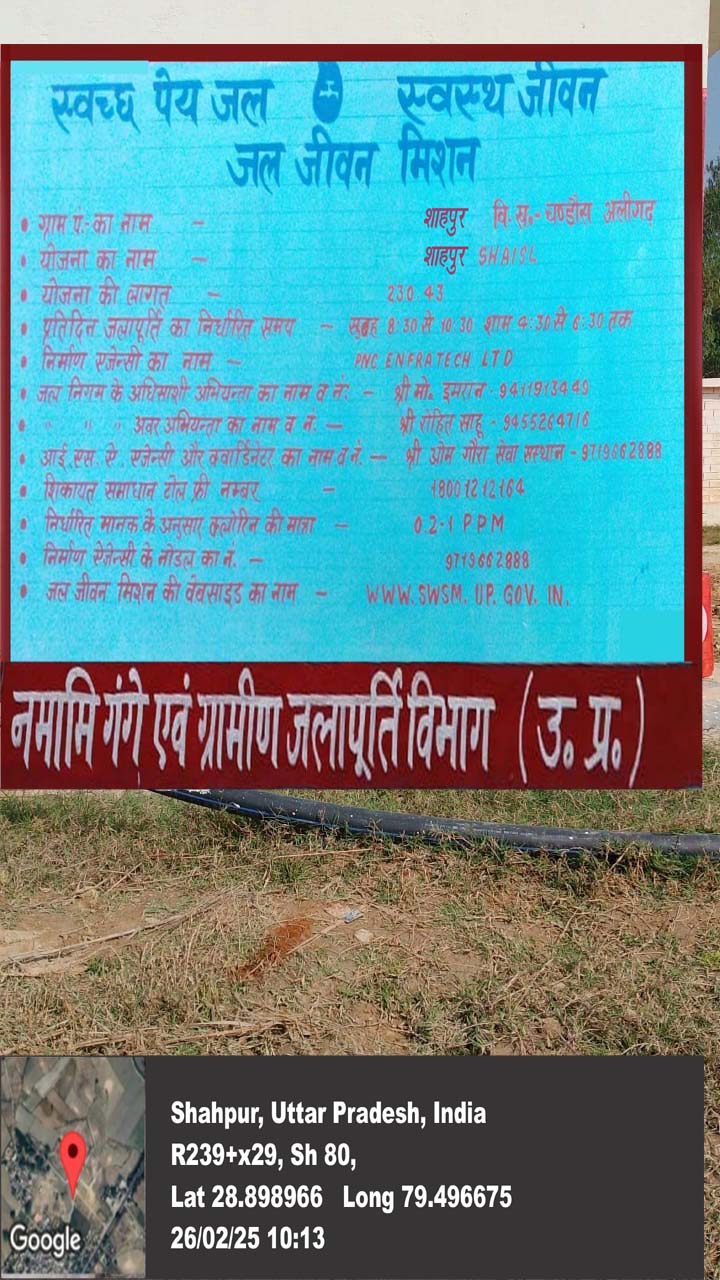 स्वच्छ पेय जल स्वस्थ जीवन
जल जीवन मिशन
• ग्राम पं:- का नाम - शाहपुर वि.ख.- चण्डौस अलीगढ़
• योजना का नाम - शाहपुर SHAISL
• योजना की लागत - 230.43
• प्रतिदिन जलापूर्ति का निर्धारित समय - सुबह 8:30 से 10:30 शाम 4:30 से 6:30 तक
• निर्माण एजेन्सी का नाम - PNC ENFRATECH LTD
• जल निगम के अधिशासी अभियन्ता का नाम व नं: - श्री मो. इमरान - 9411913449
• " " अवर अभियन्ता का नाम व नं. - श्री रोहित साहू - 9455264716
• आई.एस.ए. एजेन्सी और क्वार्डिनेटर का नाम व नं. - श्री ओम गौरा सेवा संस्थान - 9719662888
• शिकायत समाधान टोल फ्री नम्बर - 18001212164
• निर्धारित मानक के अनुसार क्लोरिन की मात्रा - 0.2-1 PPM
• निर्माण ऐजेन्सी के नोडल का नं. - 9719662888
• जल जीवन मिशन की वेबसाइड का नाम - WWW.SWSM.UP.GOV.IN.
नमामि गंगे एवं ग्रामीण जलापूर्ति विभाग (उ.प्र.)
Shahpur, Uttar Pradesh, India
R239+x29, Sh 80,
Lat 28.898966 Long 79.496675
26/02/25 10:13
Google